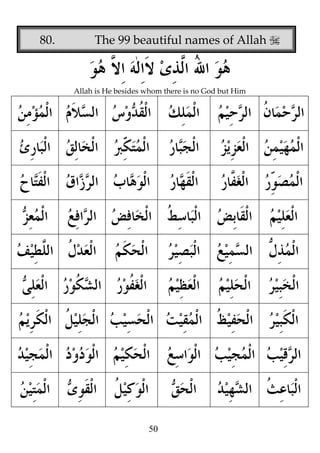 80. The 99 beautiful names of Allah ﷺ
هُوَ اللهُ الَّذِىْ لَاۤاِلٰهَ اِلَّا هُوَ
Allah is He besides whom there is no God but Him
الرَّحْمَانُ الرَّحِيْمُ الْمَلِكُ الْقُدُّوْسُ السَّلَامُ الْمُؤْمِنُ
الْمُهَيْمِنُ الْعَزِيْزُ الْجَبَّارُ الْمُتَكَبِّرُ الْخَالِقُ الْبَارِئُ
الْمُصَوِّرُ الْغَفَّارُ الْقَهَّارُ الْوَهَّابُ الرَّزَّاقُ الْفَتَّاحُ
الْعَلِيْمُ الْقَابِضُ الْبَاسِطُ الْخَافِضُ الرَّافِعُ الْمُعِزُّ
الْمُذِلُّ السَّمِيْعُ الْبَصِيْرُ الْحَكَمُ الْعَدْلُ اللَّطِيْفُ
الْخَبِيْرُ الْحَلِيْمُ الْعَظِيْمُ الْغَفُوْرُ الشَّكُوْرُ الْعَلِىُّ
الْكَبِيْرُ الْحَفِيْظُ الْمُقِيْتُ الْحَسِيْبُ الْجَلِيْلُ الْكَرِيْمُ
الرَّقِيْبُ الْمُجِيْبُ الْوَاسِعُ الْحَكِيْمُ الْوَدُوْدُ الْمَجِيْدُ
الْبَاعِثُ الشَّهِيْدُ الْحَقُّ الْوَكِيْلُ الْقَوِىُّ الْمَتِيْنُ
50